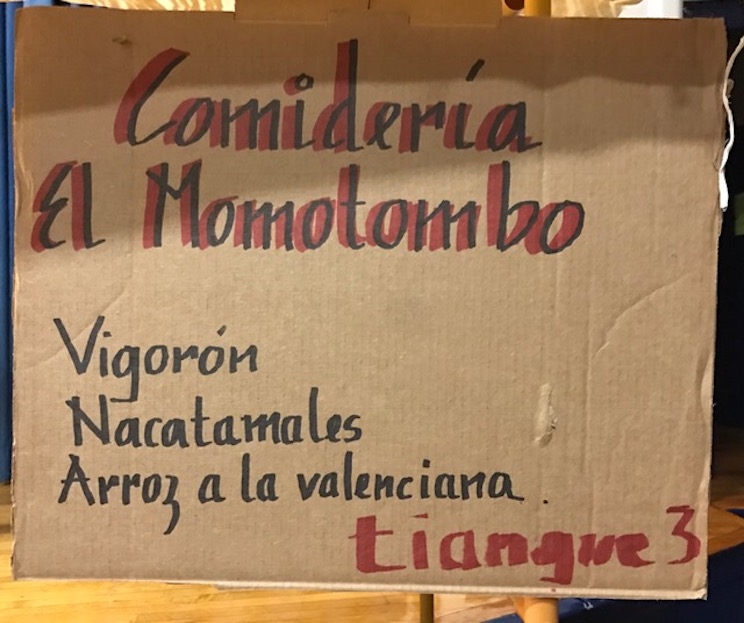 Comidería
El Momotombo
Vigorón
Nacatamales
Arroz a la valenciana.
tiangue 3